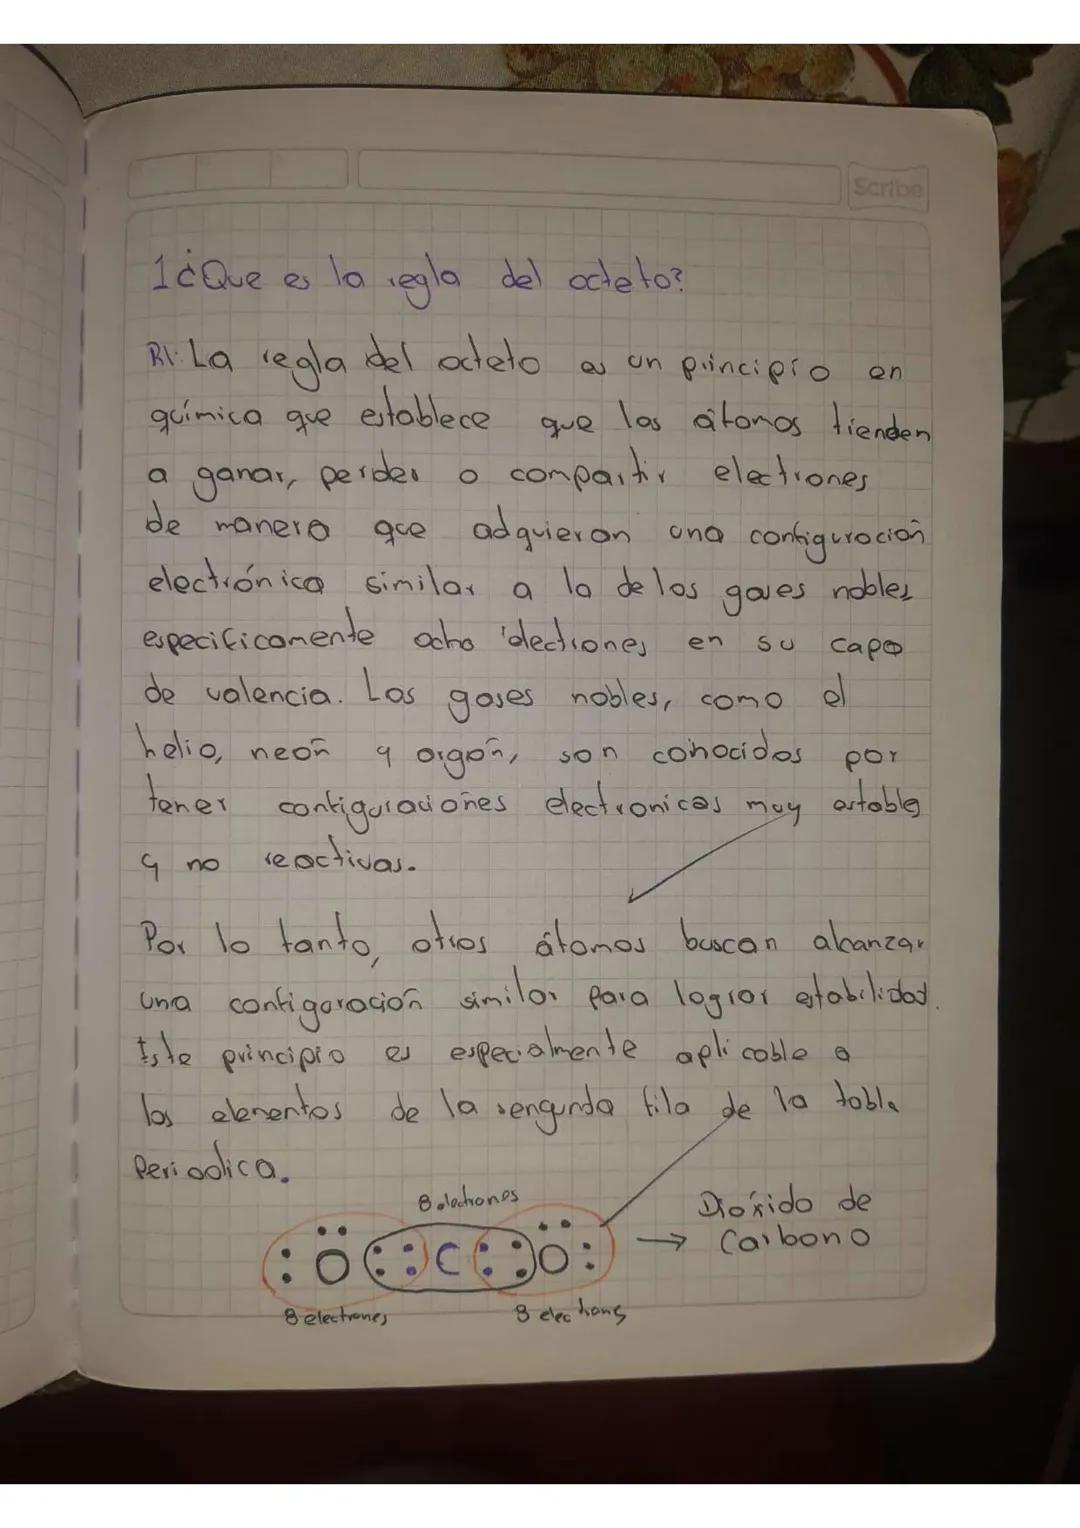 Scribe
1 ¿Que es la regla del octeto?
R1: La regla del octeto es un principio en
química que establece que los átomos tienden
a ganar, perder o compartir electrones
de manera que adquieran una configuración
electrónica similar a la de los gases nobles
especificamente ocho electrones en su capa
de valencia. Los gases nobles, como el
helio, neon y argon, son conocidos por
tener configuraciones electronicas muy estables
y no reactivas.
Por lo tanto, otros átomos buscan alcanzar
una configuración similar para lograr estabilidad.
Este principio es especialmente aplicable a
los elementos de la sengunda fila de la tabla
Periodica.
8 electrones
Dióxido de
Carbono
O C O
8 electrones 8 electrons